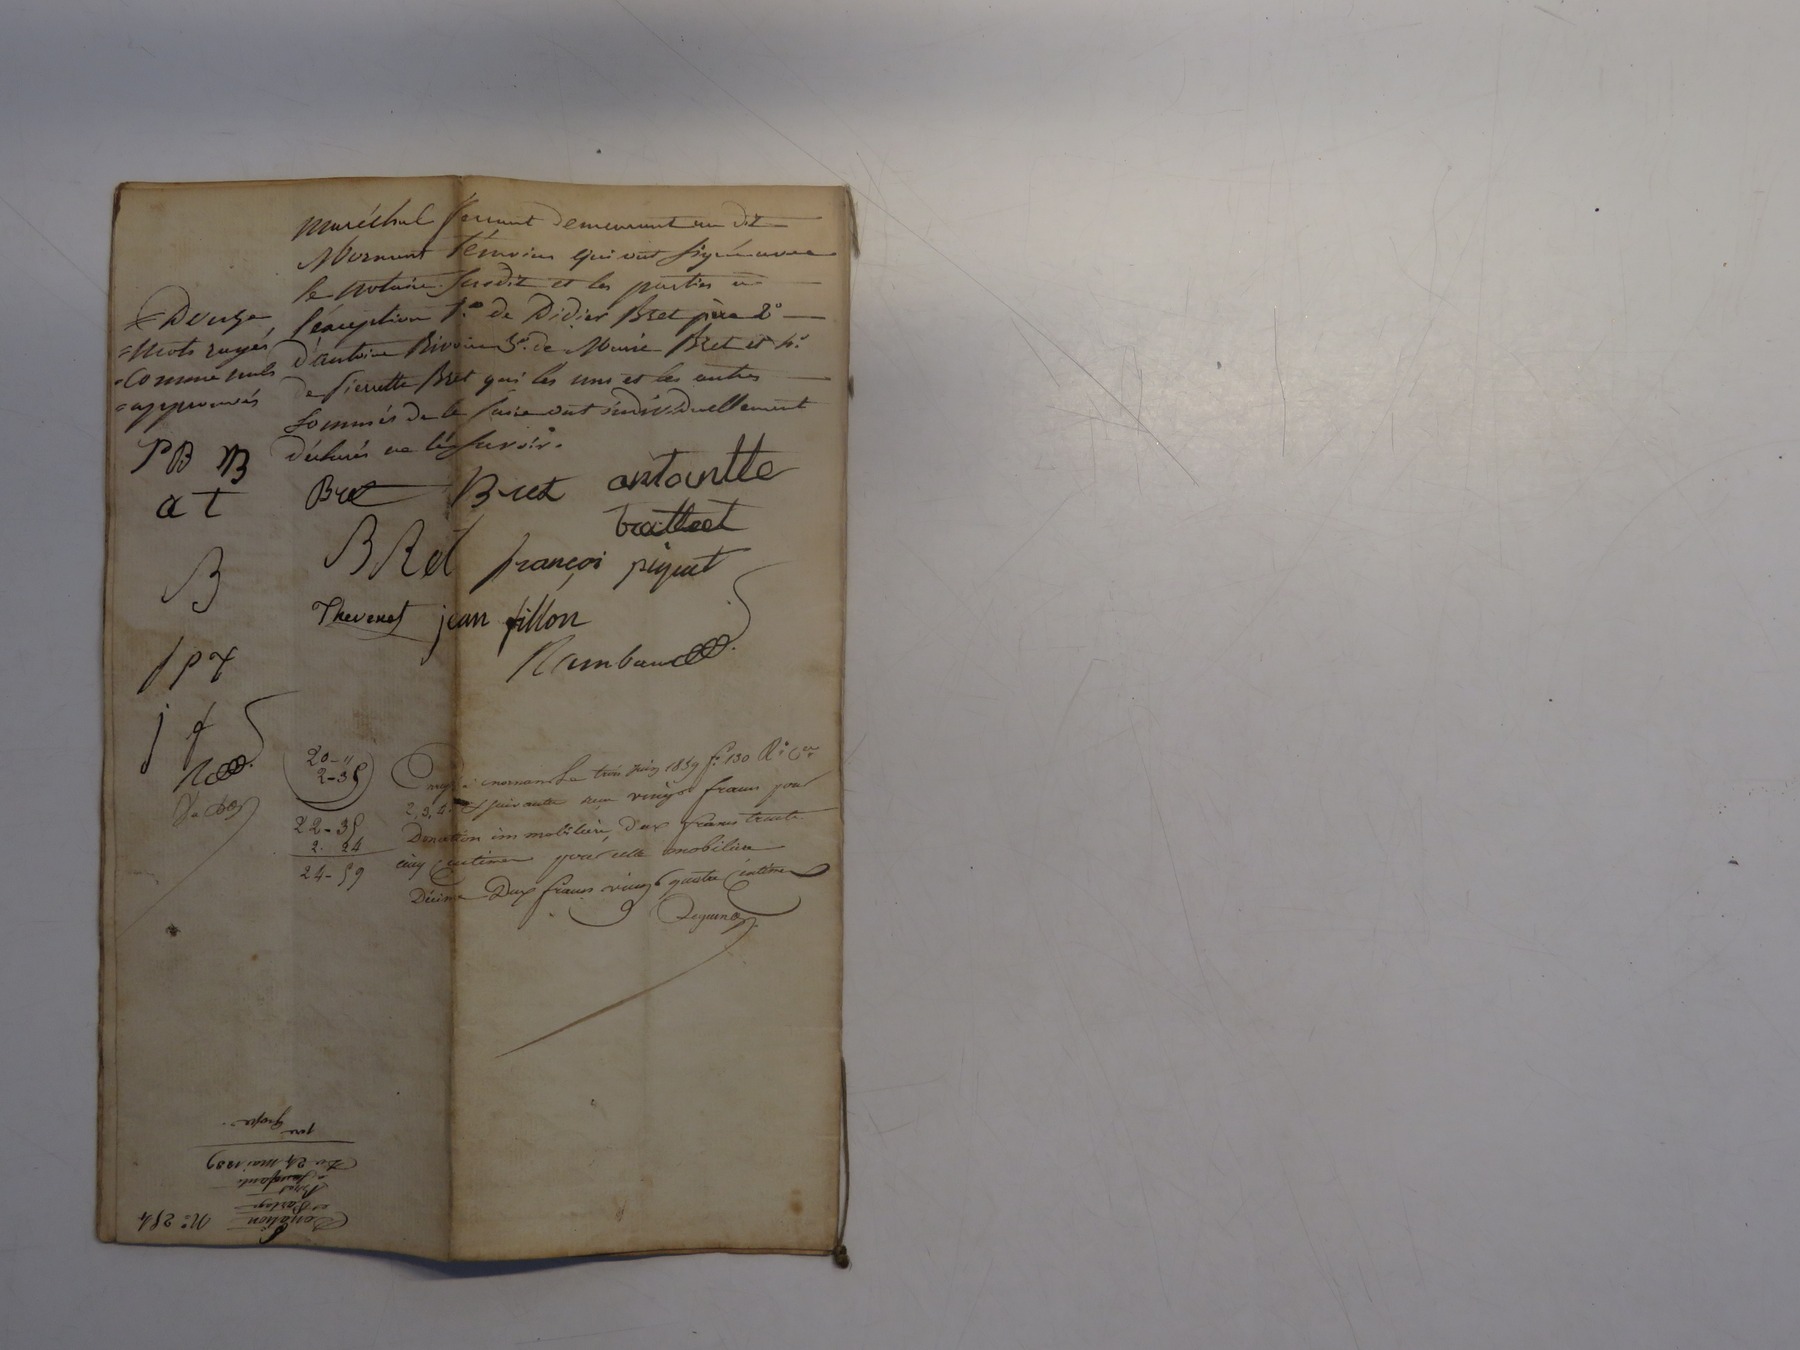 maréchal ferrant demeurant au dit
Mornant témoins qui ont signé avec
le notaire susdit et les parties a
l'éxception 1.° de Didier Bret père 2°
d'antoine Rivoire 3.° de Marie Bret et 4.°
de Pierrette Bret qui les uns et les autres
sommés de le faire ont individuellement
déclarés ne le savoir.
= Douze
= Mots rayés
= Comme nuls
= approuvés
PB B
a t
B
f p
j f
Bret Bret antoinette
BRet françoi piquet
Thevenet jean fillon
Rambaud
20-"
2-35
22-35
2. 24
24-59
mornant Le trois juin 1839 f.° 130 R.°
2, 3, 4 et suivantes reçu vingt francs pour
Donation immobilière, deux francs trente
cinq centimes pour celle mobilière
Décime Deux francs vingt quatre centimes
N.° 254
Donation
et Partage
Bret
Du 24 mai 1839
grosse